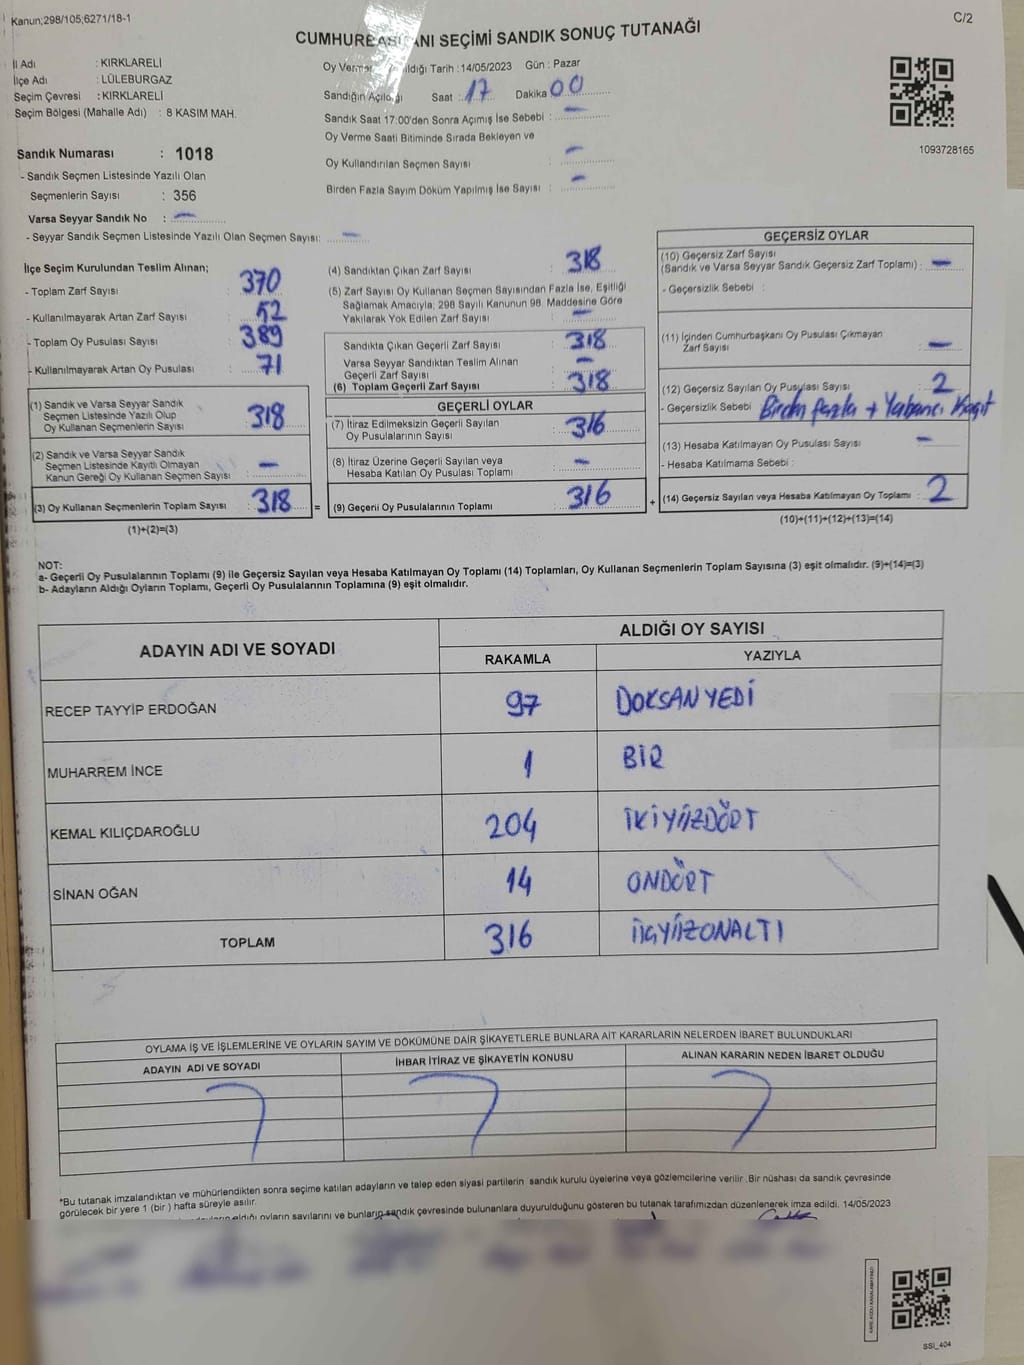 Kanun;298/105;6271/18-1
C/2
CUMHURBAŞKANI SEÇİMİ SANDIK SONUÇ TUTANAĞI
İl Adı : KIRKLARELİ
İlçe Adı : LÜLEBURGAZ
Seçim Çevresi : KIRKLARELİ
Seçim Bölgesi (Mahalle Adı) : 8 KASIM MAH.
Oy Verme Tarih : 14/05/2023 Gün : Pazar
Sandığın Açıldığı Saat : 17 Dakika 00
Sandık Saat 17:00'den Sonra Açımış İse Sebebi : —
Oy Verme Saati Bitiminde Sırada Bekleyen ve
Oy Kullandırılan Seçmen Sayısı : —
Birden Fazla Sayım Döküm Yapılmış İse Sayısı : —
1093728165
Sandık Numarası : 1018
- Sandık Seçmen Listesinde Yazılı Olan
Seçmenlerin Sayısı : 356
Varsa Seyyar Sandık No : —
- Seyyar Sandık Seçmen Listesinde Yazılı Olan Seçmen Sayısı: —
İlçe Seçim Kurulundan Teslim Alınan;
- Toplam Zarf Sayısı : 370
- Kullanılmayarak Artan Zarf Sayısı : 52
- Toplam Oy Pusulası Sayısı : 389
- Kullanılmayarak Artan Oy Pusulası : 71
(1) Sandık ve Varsa Seyyar Sandık
Seçmen Listesinde Yazılı Olup
Oy Kullanan Seçmenlerin Sayısı : 318
(2) Sandık ve Varsa Seyyar Sandık
Seçmen Listesinde Kayıtlı Olmayan
Kanun Gereği Oy Kullanan Seçmen Sayısı : —
(3) Oy Kullanan Seçmenlerin Toplam Sayısı : 318
(1)+(2)=(3)
(4) Sandıktan Çıkan Zarf Sayısı : 318
(5) Zarf Sayısı Oy Kullanan Seçmen Sayısından Fazla İse, Eşitliği
Sağlamak Amacıyla; 298 Sayılı Kanunun 98. Maddesine Göre
Yakılarak Yok Edilen Zarf Sayısı : —
Sandıkta Çıkan Geçerli Zarf Sayısı : 318
Varsa Seyyar Sandıktan Teslim Alınan
Geçerli Zarf Sayısı : —
(6) Toplam Geçerli Zarf Sayısı : 318
GEÇERLİ OYLAR
(7) İtiraz Edilmeksizin Geçerli Sayılan
Oy Pusulalarının Sayısı : 316
(8) İtiraz Üzerine Geçerli Sayılan veya
Hesaba Katılan Oy Pusulası Toplamı : —
= (9) Geçerli Oy Pusulalarının Toplamı : 316 +
GEÇERSİZ OYLAR
(10) Geçersiz Zarf Sayısı
(Sandık ve Varsa Seyyar Sandık Geçersiz Zarf Toplamı) : —
- Geçersizlik Sebebi :
(11) İçinden Cumhurbaşkanı Oy Pusulası Çıkmayan
Zarf Sayısı : —
(12) Geçersiz Sayılan Oy Pusulası Sayısı : 2
- Geçersizlik Sebebi Birden fazla + Yabancı Kağıt
(13) Hesaba Katılmayan Oy Pusulası Sayısı : —
- Hesaba Katılmama Sebebi :
(14) Geçersiz Sayılan veya Hesaba Katılmayan Oy Toplamı : 2
(10)+(11)+(12)+(13)=(14)
NOT:
a- Geçerli Oy Pusulalarının Toplamı (9) ile Geçersiz Sayılan veya Hesaba Katılmayan Oy Toplamı (14) Toplamları, Oy Kullanan Seçmenlerin Toplam Sayısına (3) eşit olmalıdır. (9)+(14)=(3)
b- Adayların Aldığı Oyların Toplamı, Geçerli Oy Pusulalarının Toplamına (9) eşit olmalıdır.
ADAYIN ADI VE SOYADI ALDIĞI OY SAYISI
RAKAMLA YAZIYLA
RECEP TAYYİP ERDOĞAN 97 DOKSANYEDİ
MUHARREM İNCE 1 BİR
KEMAL KILIÇDAROĞLU 204 İKİYÜZDÖRT
SİNAN OĞAN 14 ONDÖRT
TOPLAM 316 ÜÇYÜZONALTI
OYLAMA İŞ VE İŞLEMLERİNE VE OYLARIN SAYIM VE DÖKÜMÜNE DAİR ŞİKAYETLERLE BUNLARA AİT KARARLARIN NELERDEN İBARET BULUNDUKLARI
ADAYIN ADI VE SOYADI İHBAR İTİRAZ VE ŞİKAYETİN KONUSU ALINAN KARARIN NEDEN İBARET OLDUĞU
*Bu tutanak imzalandıktan ve mühürlendikten sonra seçime katılan adayların ve talep eden siyasi partilerin sandık kurulu üyelerine veya gözlemcilerine verilir .Bir nüshası da sandık çevresinde
görülecek bir yere 1 (bir ) hafta süreyle asılır.
aldığı oyların sayılarını ve bunların sandık çevresinde bulunanlara duyurulduğunu gösteren bu tutanak tarafımızdan düzenlenerek imza edildi. 14/05/2023
SSI_404